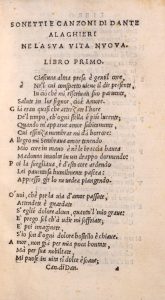 SONETTI E CANZONI DI DANTE
ALAGHIERI
NE LA SVA VITA NVOVA.
LIBRO PRIMO.
Ciascune alma presa è gentil core,
Nel cui conspetto viene il dir presente,
In ciò che mi suo parvente,
Salute in lor signor, cioè Amore.
Gia eran quasi ch'atterzate l'hore
Del tempo, ch'ogni stella è piu lucente,
Quando m'apparve amor subitamente,
Cui essenza membrar mi dà horrore:
Allegro mi sembrava amor tenendo
Mio core in mano, & ne le braccia havea
Madonna involta in un drappo dormendo:
Poi la svegliava, è d'esto core ardendo
Lei paventosa humilmente pascea:
Appresso gir lo ne vedea piangendo.
O voi, che per la via d'amor passate,
Attendete & guardate
S'egli è dolor alcun, quanto'l mio grave:
E prego sol ch'à udir mi soffriate:
E poi imaginate,
S'io son d'ogni dolore hostello & chiave.
Amor, non già per mia poca bontate,
Ma per sua nobiltate
Mi pose in vita si dolce & soave,
Can.diDan. a